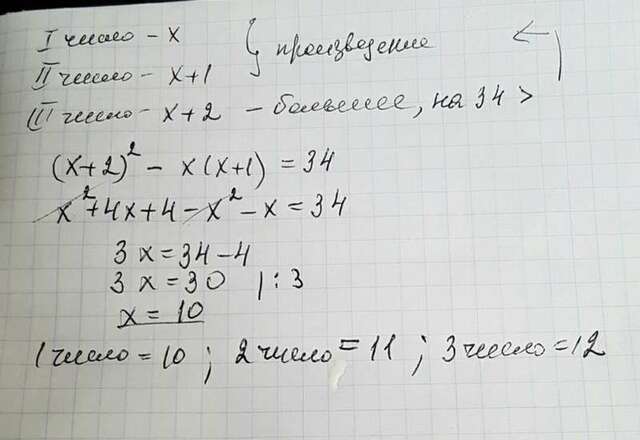 I число - x } произведение
II число - x+1
III число - x+2 - большее, на 34 >
(x+2)² - x(x+1) = 34
x²+4x+4-x²-x=34
3x=34-4
3x=30 | : 3
x=10
1 число = 10 ; 2 число = 11 ; 3 число = 12